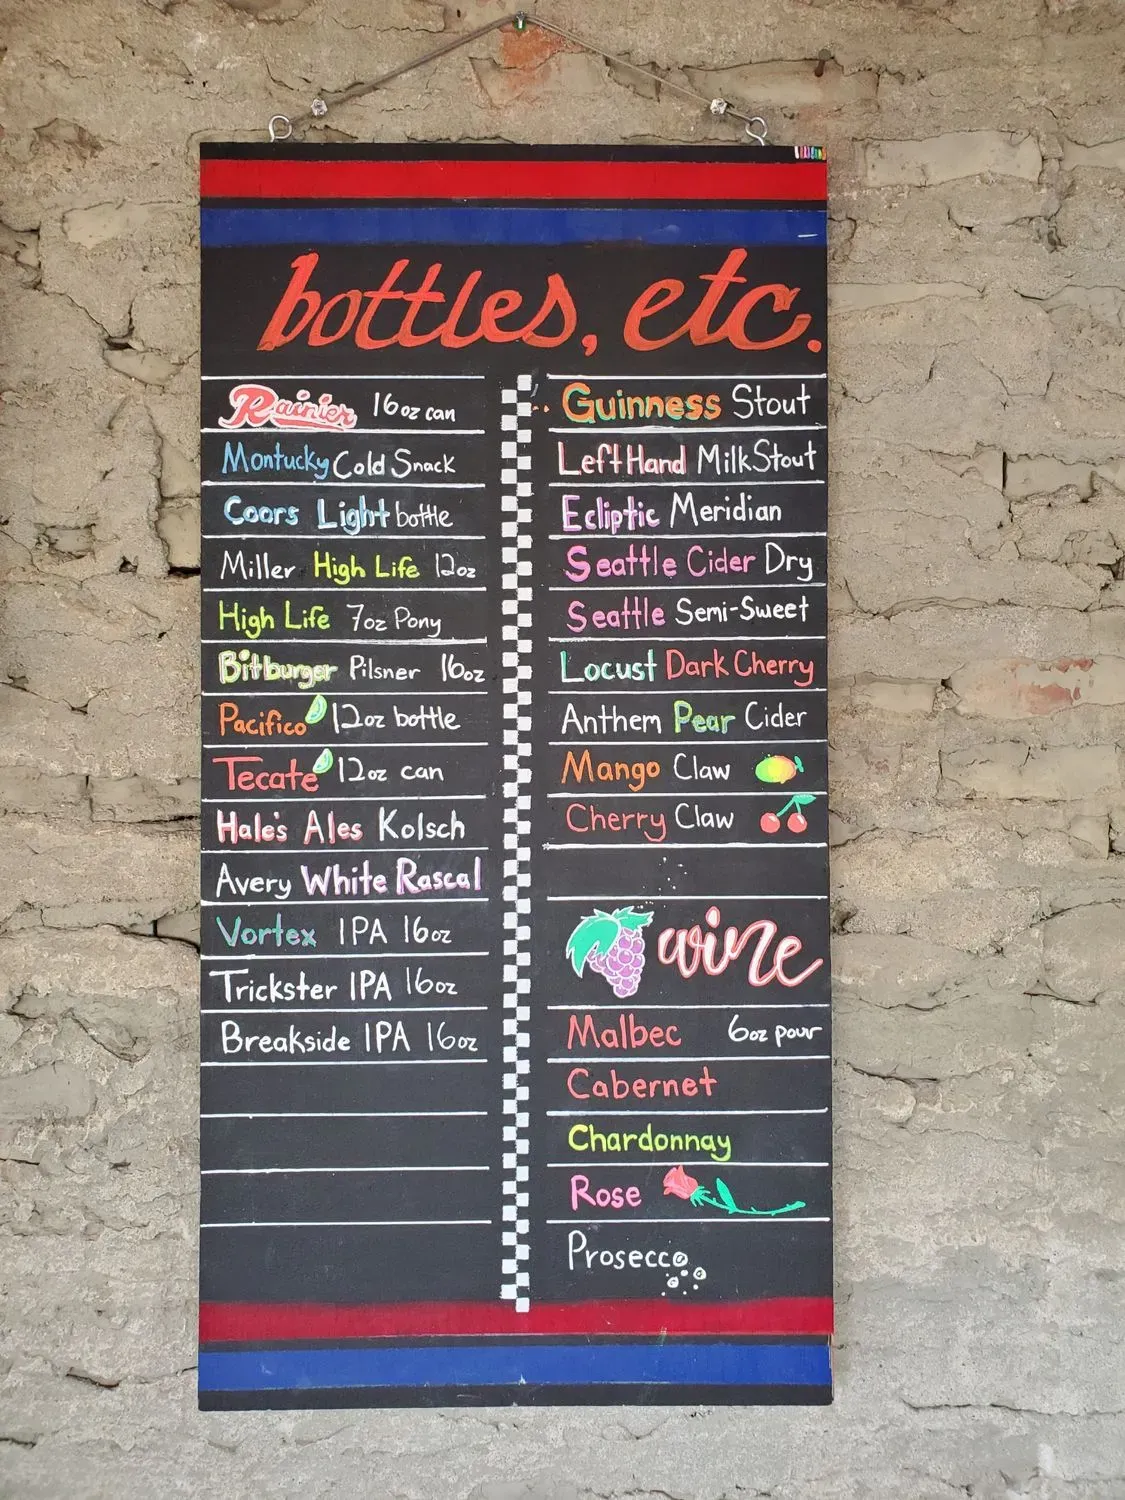 bottles, etc.
Rainier 16oz can
Montucky Cold Snack
Coors Light bottle
Miller High Life 12oz
High Life 7oz Pony
Bitburger Pilsner 16oz
Pacifico 12oz bottle
Tecate 12oz can
Hale's Ales Kolsch
Avery White Rascal
Vortex IPA 16oz
Trickster IPA 16oz
Breakside IPA 16oz
Guinness Stout
Left Hand Milk Stout
Ecliptic Meridian
Seattle Cider Dry
Seattle Semi-Sweet
Locust Dark Cherry
Anthem Pear Cider
Mango Claw
Cherry Claw
wine
Malbec 6oz pour
Cabernet
Chardonnay
Rose
Prosecco